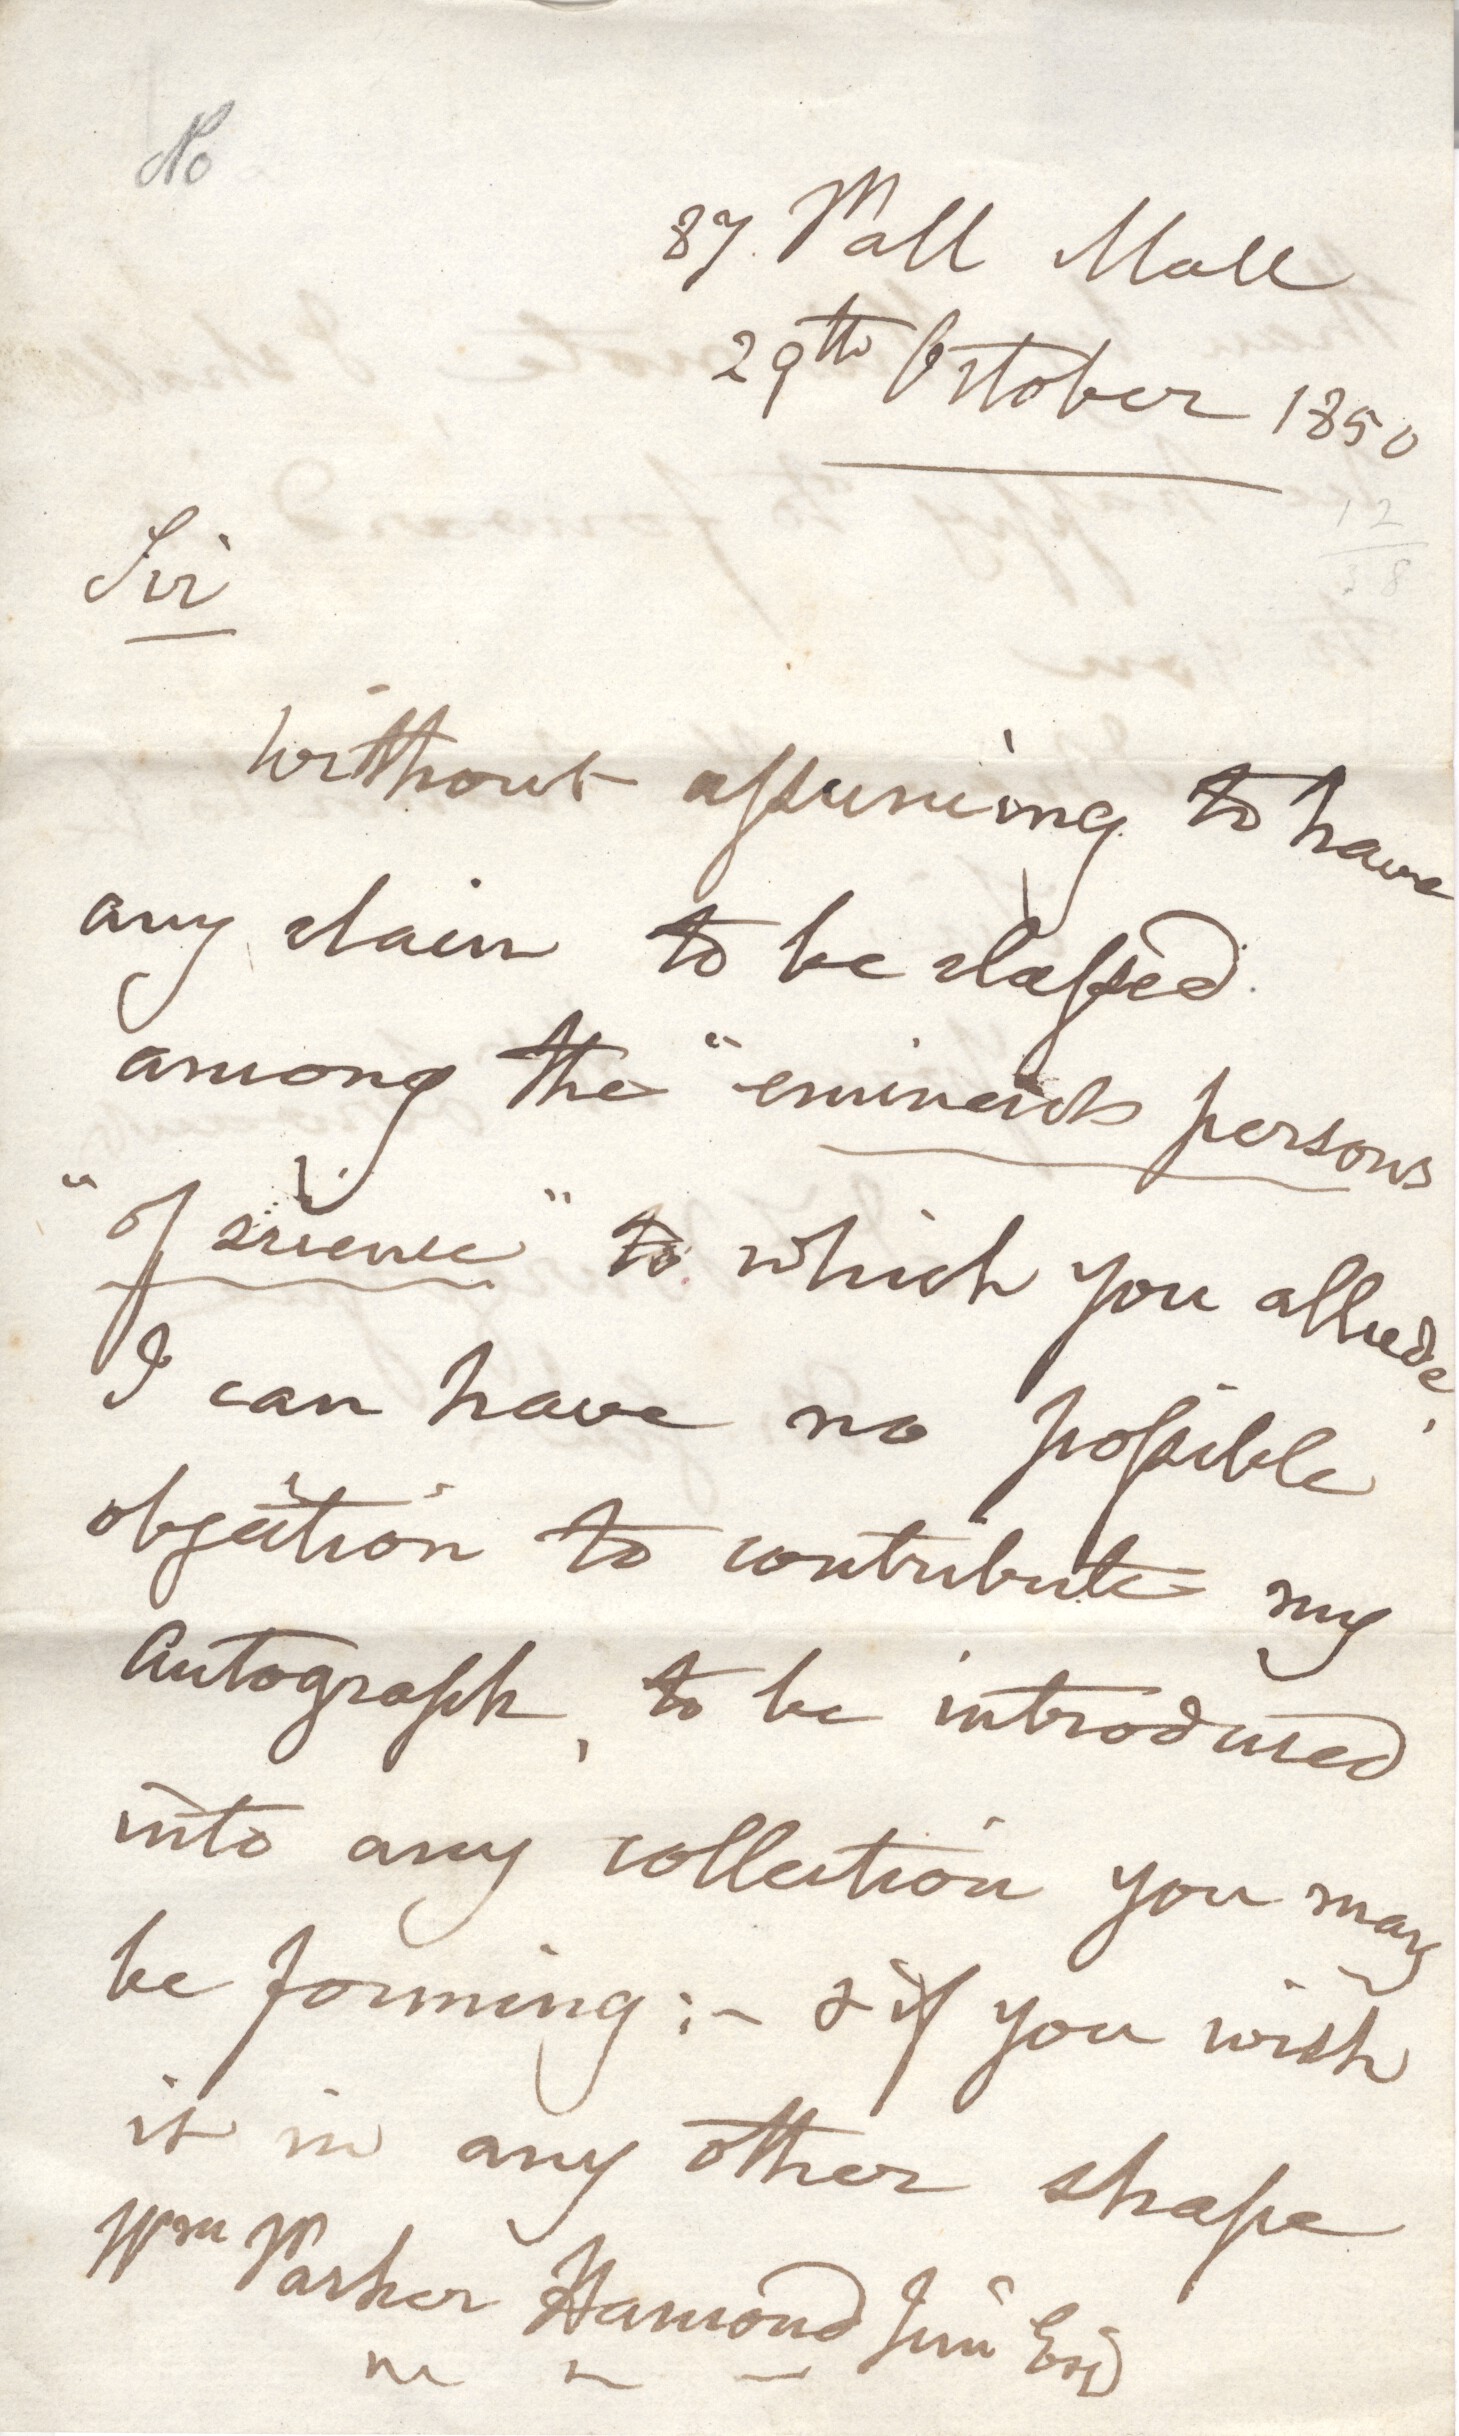 No
87. Pall Mall
29th October 1850
12
38
Sir
Without assuming to have
any claim to be classed
among the "eminent persons
"of science" to which you allude,
I can have no possible
objection to contribute my
Autograph, to be introduced
into any collection you may
be forming :- & if you wish
it in any other shape
Wm Parker Hamond Junr Esq